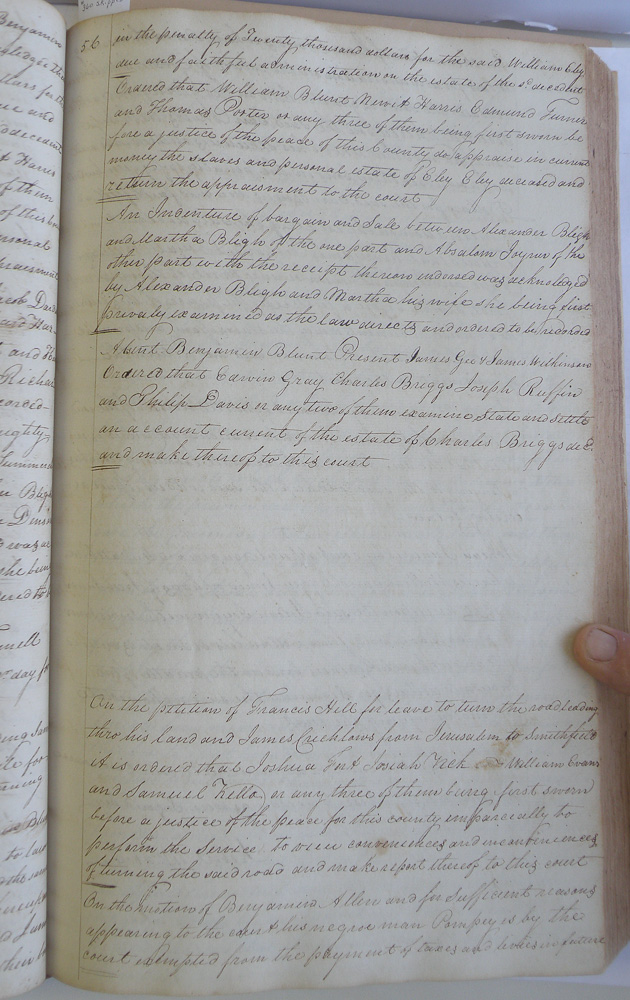 56
in the penalty of Twenty thousand dollars for the said William Eley
due and faithful administration on the estate of the sd. decedent
Ordered that William Blunt Newit Harris Edmund Turner
and Thomas Porter or any three of them being first sworn be
fore a justice of the peace of this County do appraise in current
money the slaves and personal estate of Eley Eley deceased and
return the appraisment to the court
An Indenture of bargain and Sale between Alexander Bligh
and Martha Bligh of the one part and Absalom Joyner of the
other part with the receipt thereon indorsed was acknoledged
by Alexander Bligh and Martha his wife she being first
privaly examined as the law directs and ordered to be recorded
Absent Benjamin Blunt Present James Gee & James Wilkinson
Ordered that Edwin Gray Charles Briggs Joseph Ruffin
and Philip Davis or any two of them examine State and settle
an account current of the estate of Charles Briggs decd.
and make thereof to this court
On the petition of Francis Hill for leave to turn the road leading
thro his land and James Crichlows from Jerusalem to Smithfield
it is ordered that Joshua Fort Josiah Vick William Evans
and Samuel Kello or any three of them being first sworn
before a justice of the peace for this county imparcially to
perform the service to view conveniences and inconveniences
of turning the said road and make report thereof to this court
On the motion of Benjamin Allen and for sufficient reasons
appearing to the court his negroe man Pompey is by the
court exempted from the payment of taxes and levies in future